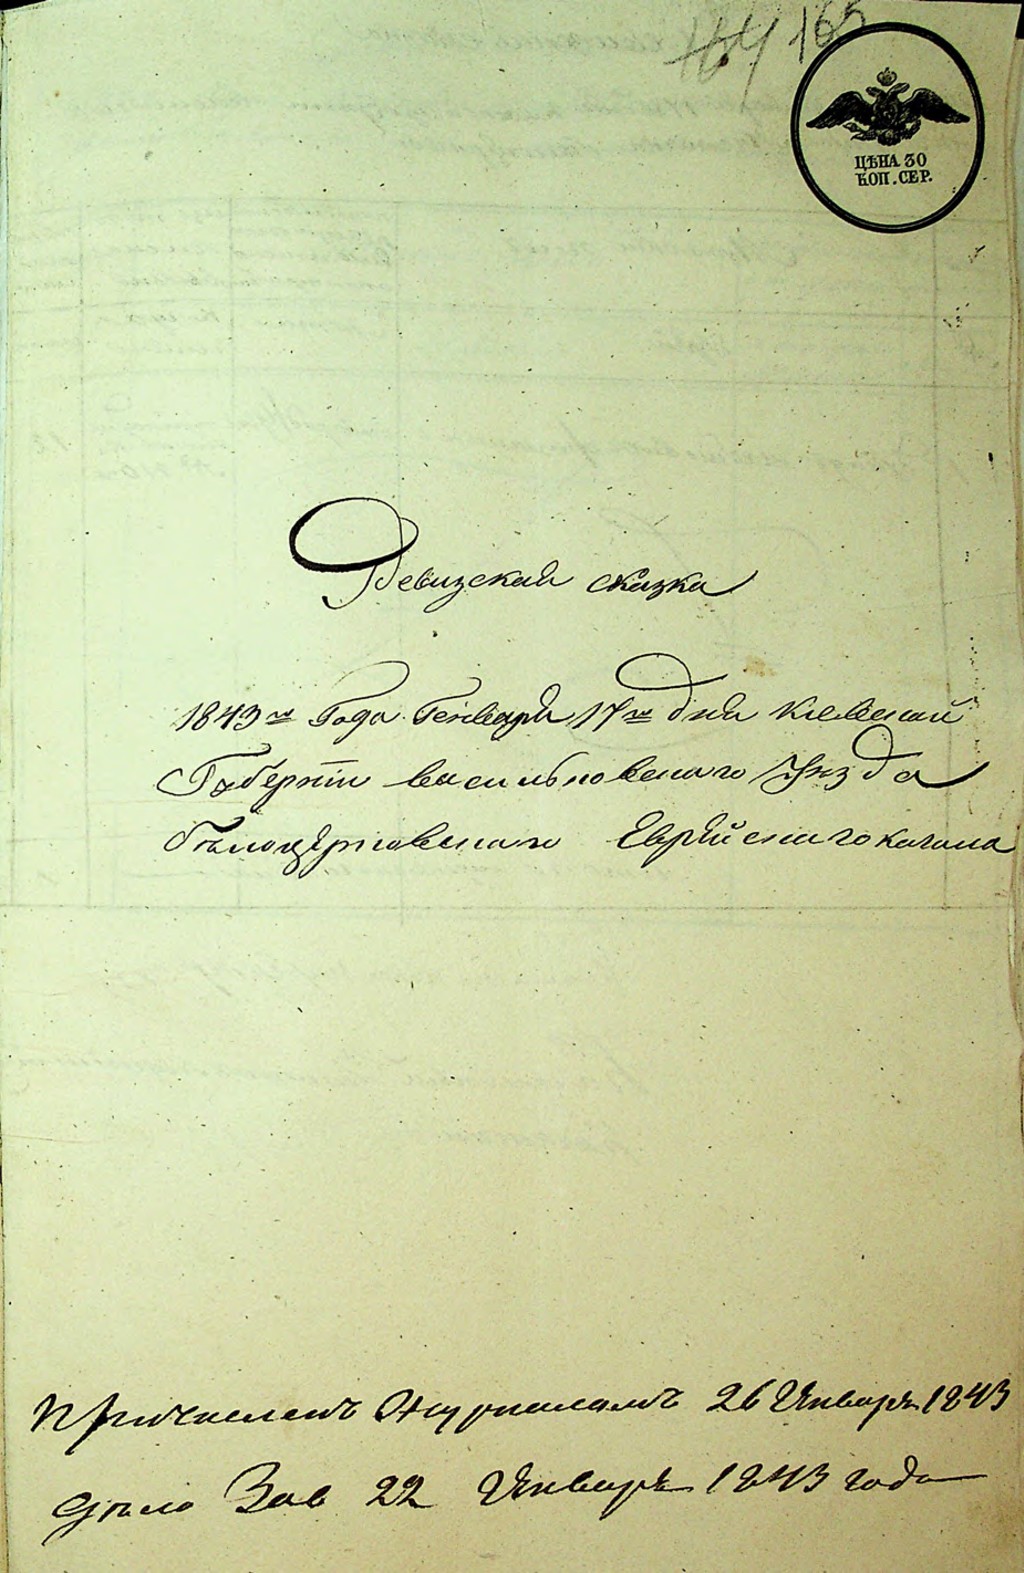 164 165
ЦѢНА 30
КОП. СЕР.
Ревизская сказка
1843го Года Генваря 17го дня Киевской
Губернїи васильковскаго Уѣзда
бѣлоцерковскаго Еврейскаго кагала
Причисленъ Журналомъ 26 Январѧ 1843
дѣло Зав 22 Январѧ 1843 года